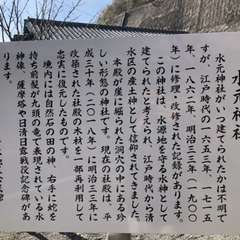 水元神社
水元神社がいつ建てられたかは不明で
すが、江戸時代の一五五三年、一七一五
年、一八六二年、明治三三年(一九〇〇
年)に修理・改修された記録があります。
この神社は、水源地を守る水神として
建てられたと考えられ、江戸時代から清
水区の産土神として信仰されてきました。
本殿が崖に掘られた洞穴の中にある珍
しい形態の神社です。現在の社殿は、平
成三十年(二〇一八年)に明治三三年に
改築された社殿の木材を一部再利用して
忠実に復元したものです。
境内には自然石の田の神、右手に蛇を
持ち前髪が九頭の竜で表現されている水
神様、薩摩塔や日清日露戦役記念碑があ
ります。